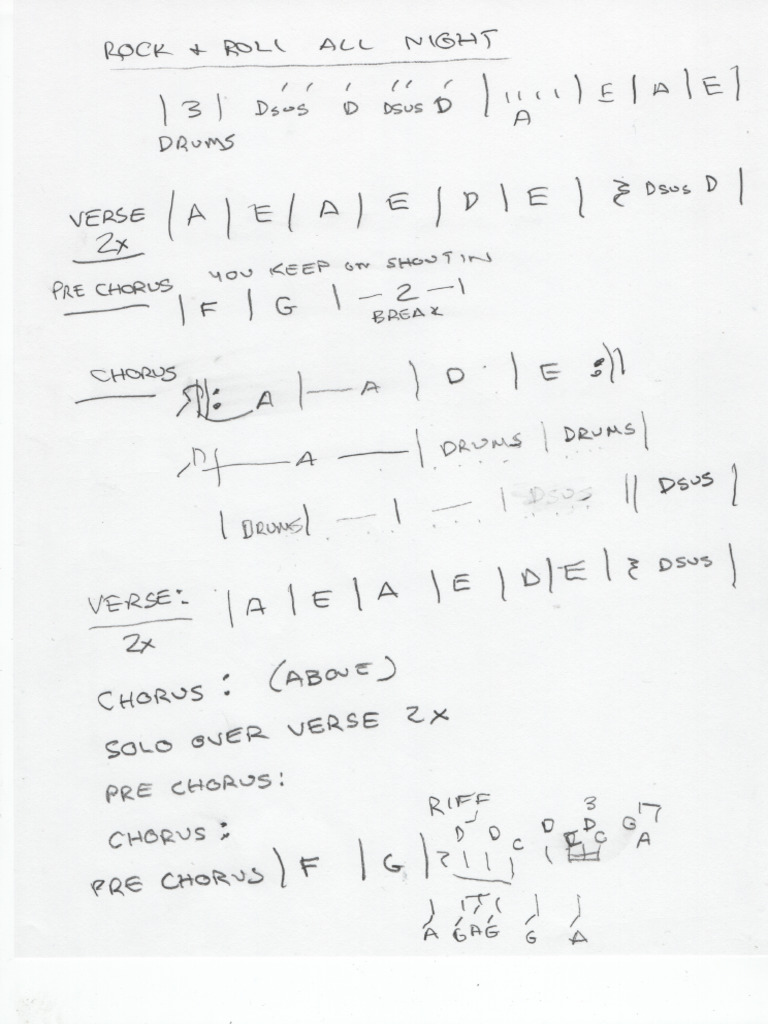 ROCK + ROLL ALL NIGHT
| 3 | DSUS D DSUS D | A | E | A | E |
DRUMS
VERSE | A | E | A | E | D | E | DSUS D |
2X
YOU KEEP ON SHOUTIN
PRE CHORUS | F | G | — 2 — |
BREAK
CHORUS ||: A | — A | D | E :||
— A — | DRUMS | DRUMS |
| DRUMS | — | — | DSUS || DSUS |
VERSE: | A | E | A | E | D | E | DSUS |
2X
CHORUS: (ABOVE)
SOLO OVER VERSE 2X
PRE CHORUS:
CHORUS:
RIFF
PRE CHORUS | F | G | D D C D 3 D C G A
A G A G G A